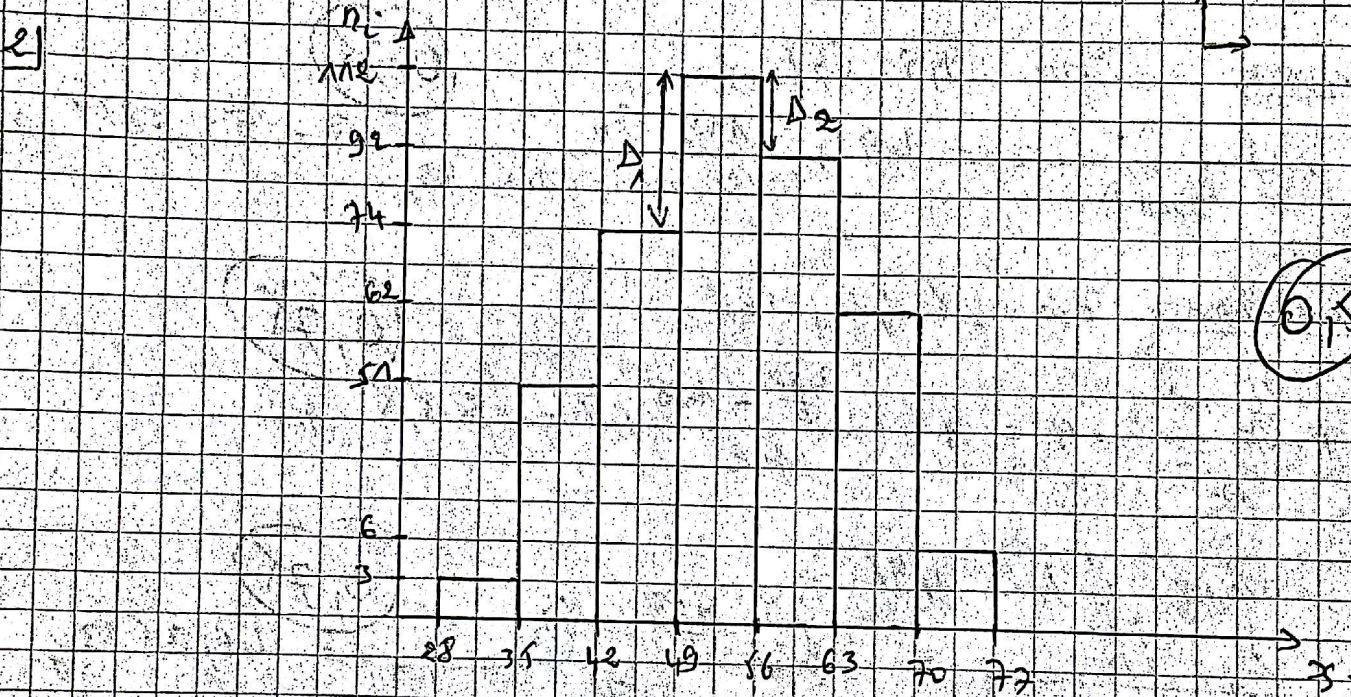 2]
ni
112
92
74
62
51
6
3
Δ1
Δ2
28 35 42 49 56 63 70 77